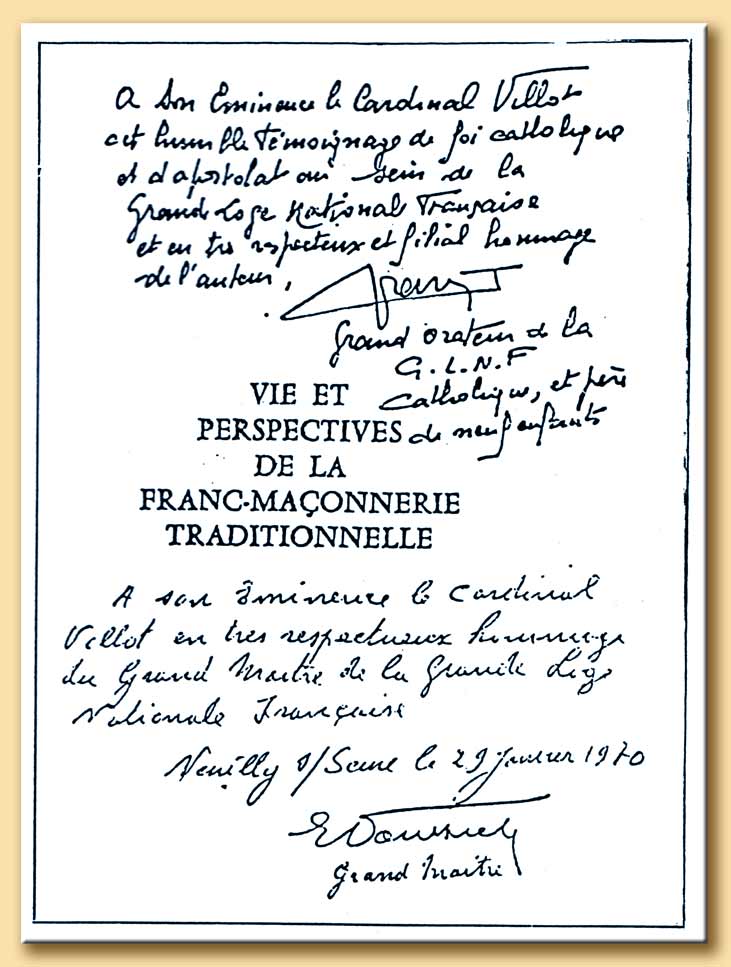 A Son Eminence le Cardinal Villot
cet humble témoignage de foi catholique
et d'apostolat au sein de la
Grande Loge Nationale Française
et en très respectueux et filial hommage
de l'auteur,
Grand Orateur de la
G.L.N.F
Catholique, et père
de neuf enfants
VIE ET
PERSPECTIVES
DE LA
FRANC-MAÇONNERIE
TRADITIONNELLE
A son Eminence le Cardinal
Villot en très respectueux hommage
du Grand Maitre de la Grande Loge
Nationale Française
Neuilly s/Seine le 29 janvier 1970
Grand Maitre